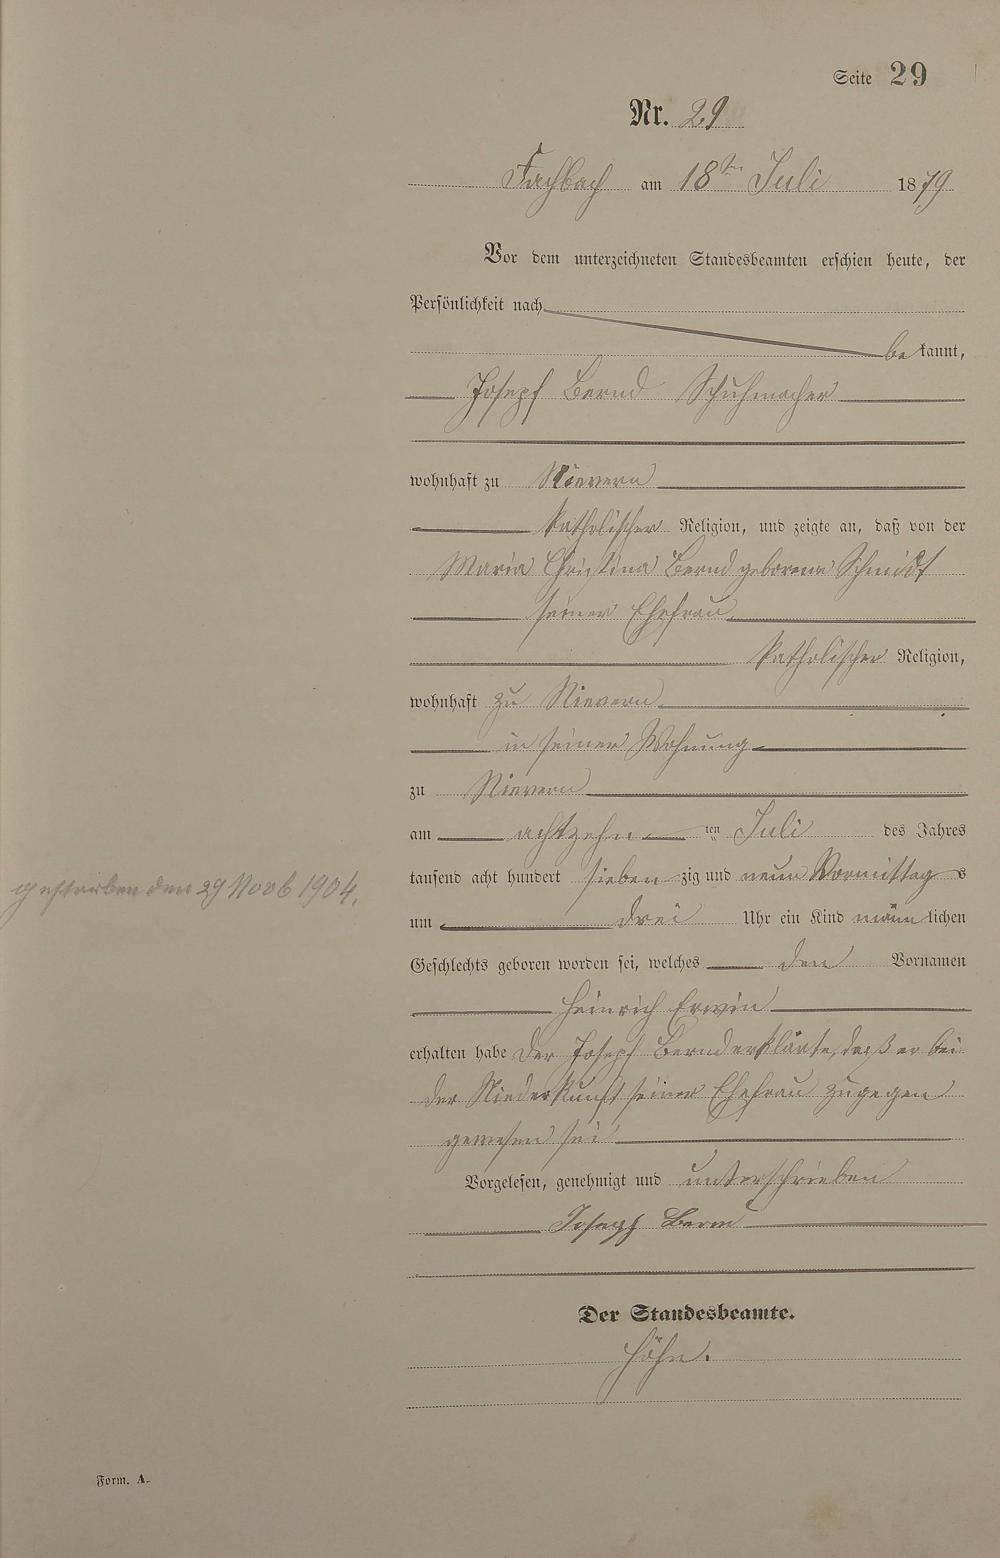 Seite 29
Nr. 29
Fachbach am 18ten Juli 1879
Vor dem unterzeichneten Standesbeamten erschien heute, der
Persönlichkeit nach
be kannt,
Joseph Bernd Schuhmacher
wohnhaft zu Nievern
katholischer Religion, und zeigte an, daß von der
Maria Christina Bernd geborenen Schmidt
seiner Ehefrau
katholischer Religion,
wohnhaft zu Nievern
in seiner Wohnung
zu Nievern
am achtzehn ten Juli des Jahres
tausend acht hundert sieben zig und neun Vormittag s
um drei Uhr ein Kind männ lichen
Geschlechts geboren worden sei, welches den Vornamen
Heinrich Erwin
erhalten habe Der Joseph Bernd erklärte, daß er bei
der Niederkunft seiner Ehefrau zugegen
gewesen sei
Vorgelesen, genehmigt und unterschrieben
Joseph Bernd
Der Standesbeamte.
Höhn.
gestorben den 29 Novb 1904.
Form. A.